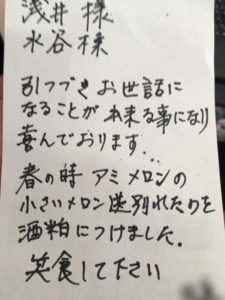 浅井 様
水谷 様
引つづき お世話に
なることが 出来る事になり
喜んでおります.
春の時 アミメロンの
小さいメロン 選別れたりを
酒粕につけました。
笑食して下さい